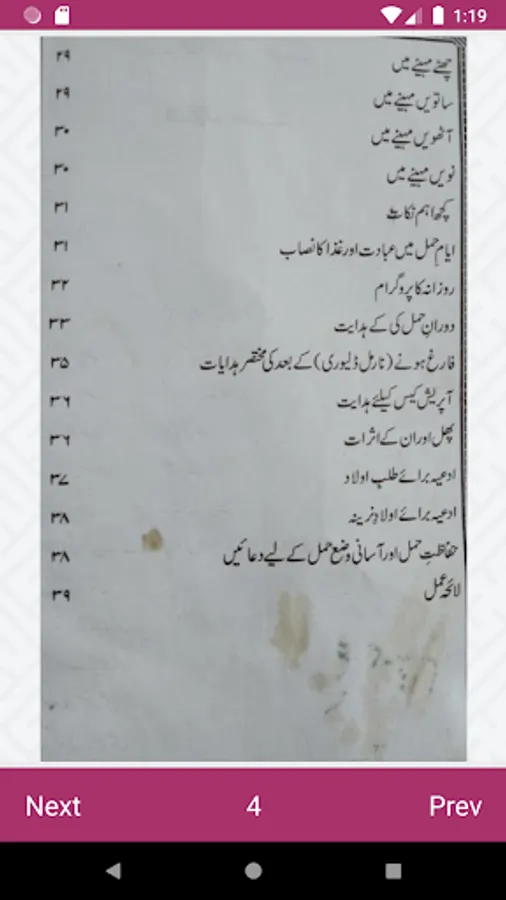 1:19
چھٹے مہینے میں ۲۹
ساتویں مہینے میں ۲۹
آٹھویں مہینے میں ۳۰
نویں مہینے میں ۳۰
کچھ اہم نکات ۳۱
ایامِ حمل میں عبادت اور غذا کا نصاب ۳۱
روزانہ کا پروگرام ۳۲
دورانِ حمل کی کے ہدایت ۳۳
فارغ ہونے (نارمل ڈلیوری) کے بعد کی مختصر ہدایات ۳۵
آپریشن کیس کیلئے ہدایت ۳۶
پھل اور ان کے اثرات ۳۶
ادعیہ برائے طلبِ اولاد ۳۷
ادعیہ برائے اولادِ نرینہ ۳۸
حفاظتِ حمل اور آسانی وضع حمل کے لیے دعائیں ۳۸
لائحہ عمل ۳۹
Next 4 Prev